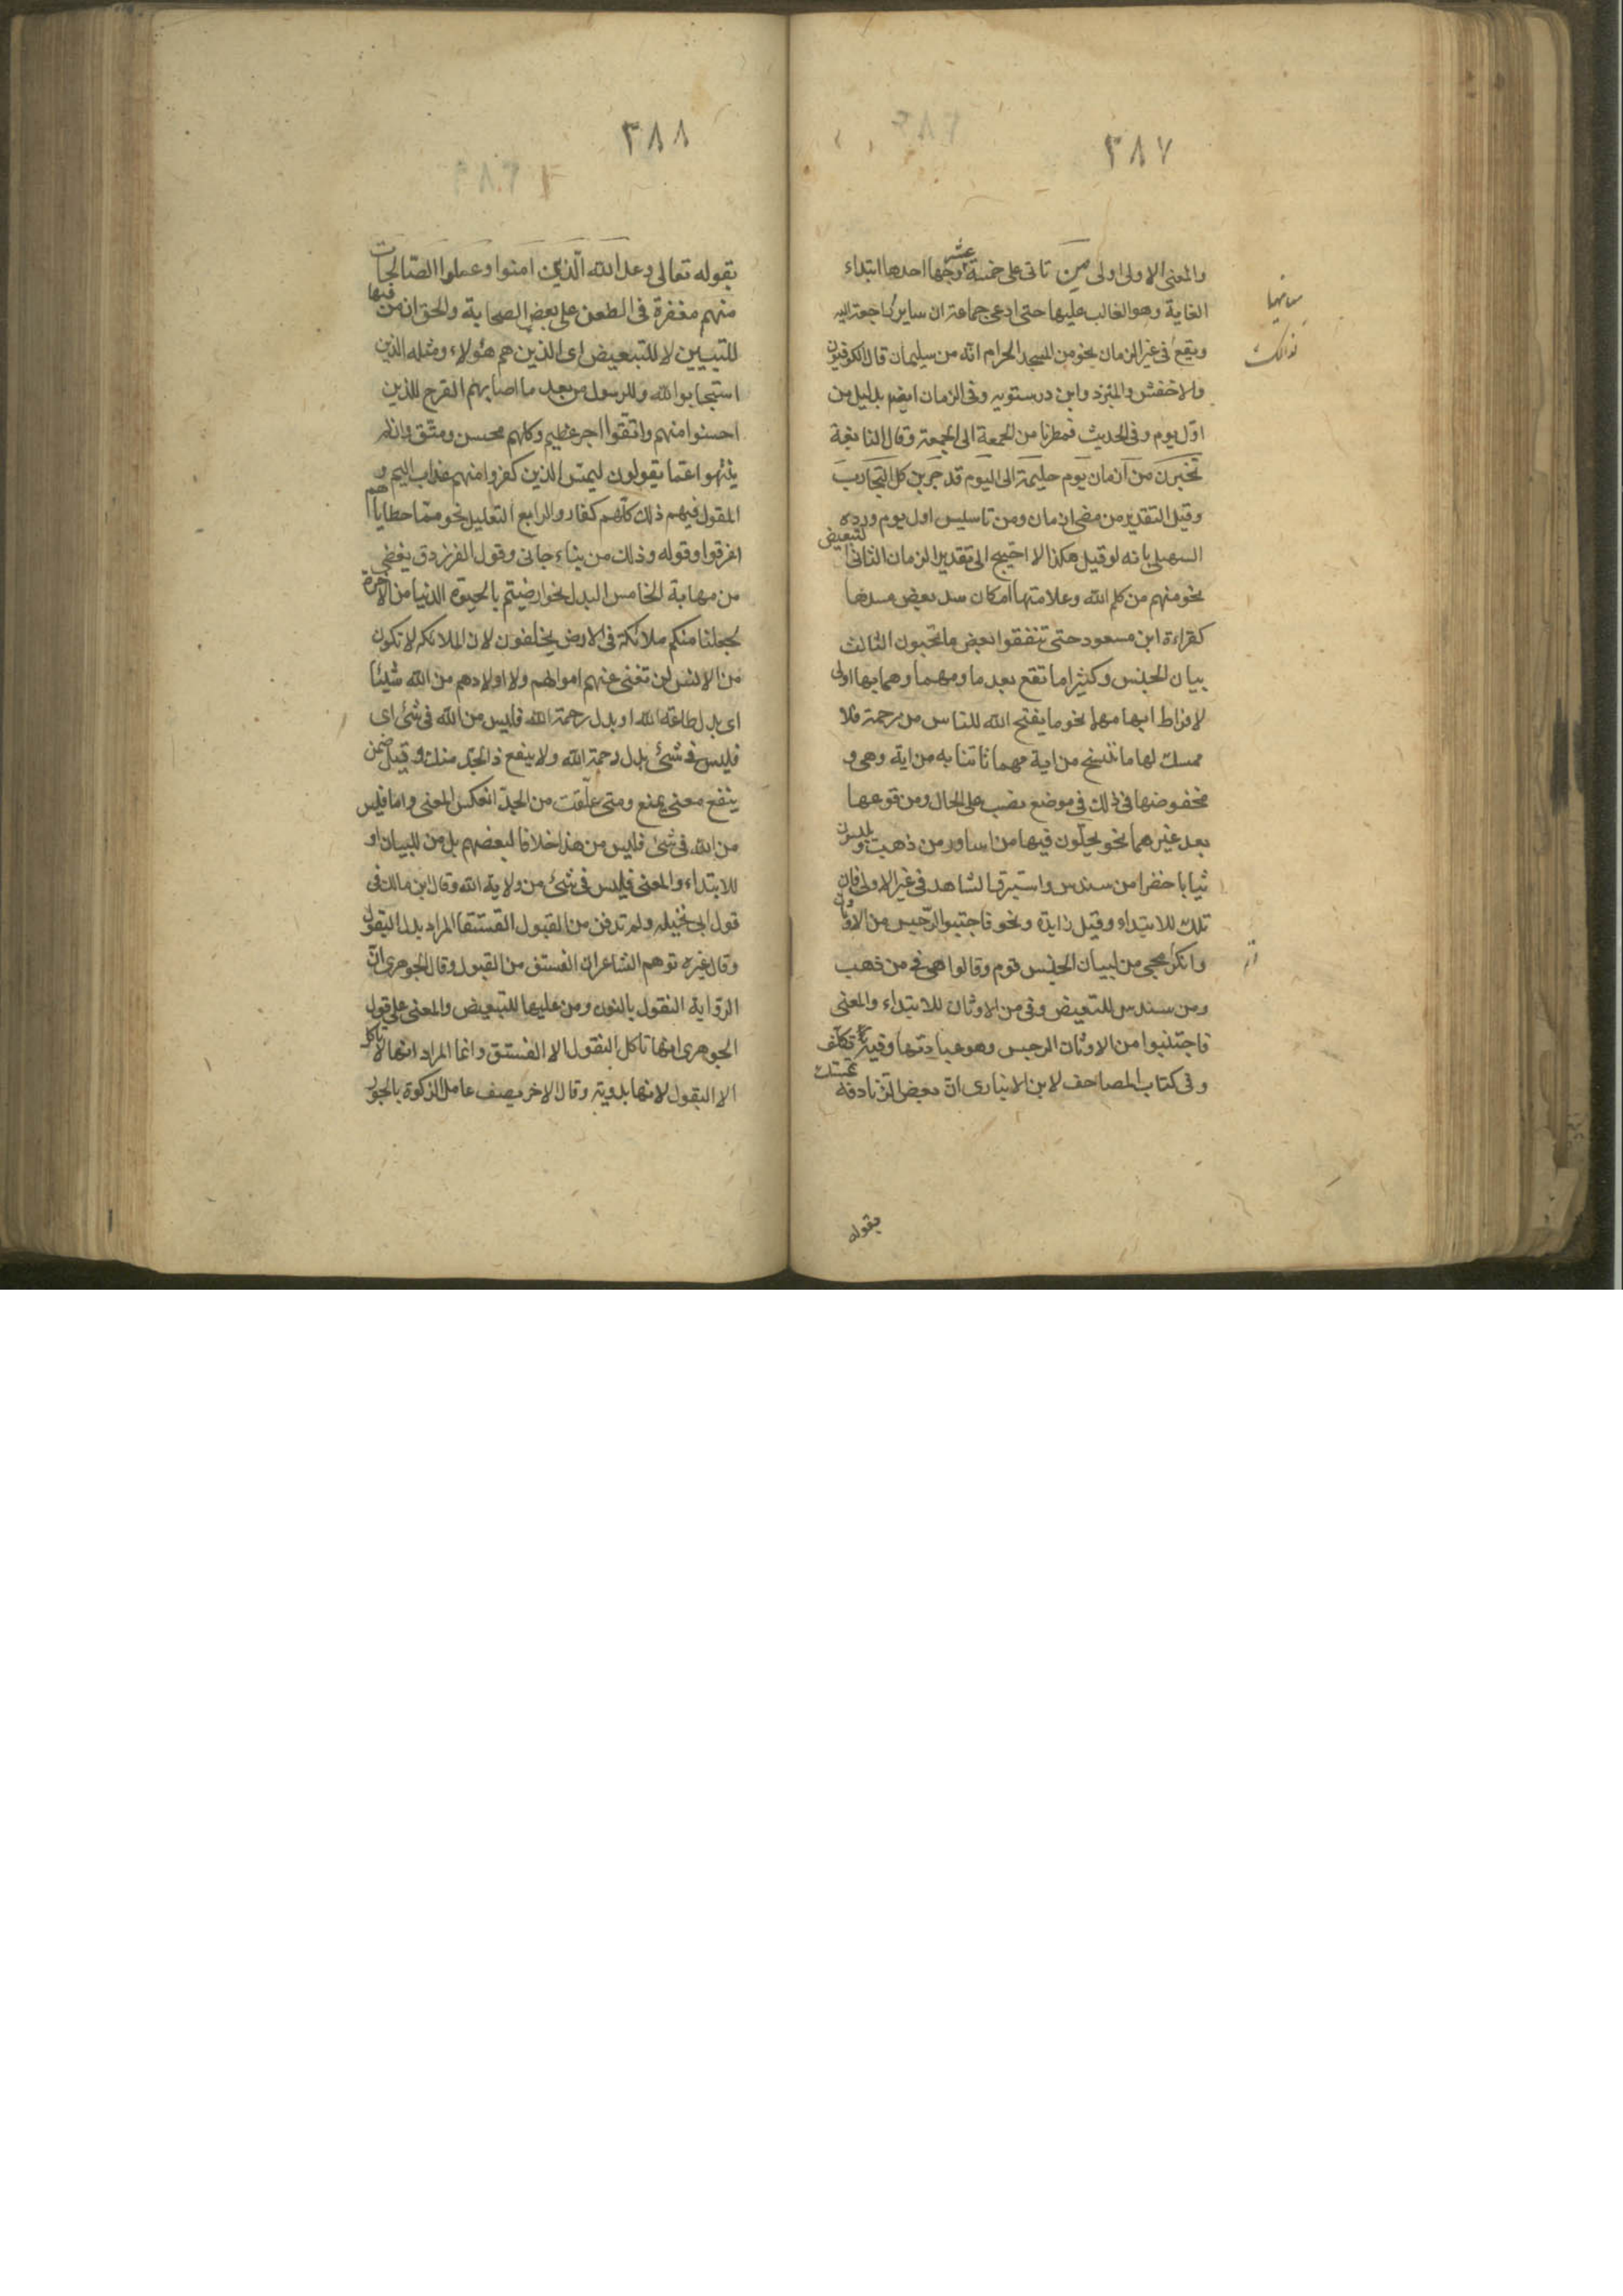 ٣٨٧
والمعنى الاولى اولى من تاتى على خمسة عشر وجها احدها ابتداء
الغاية وهو الغالب عليها حتى ادعى جماعة ان ساير راجعة اليه
ويقع فى غير الزمان نحو من المسجد الحرام انه من سليمان قال الكوفيون
والاخفش والمبرد وابن درستويه وفى الزمان ايضم بدليل من
اول يوم وفى الحديث فمطرنا من الجمعة الى الجمعة وقال النابغة
تخيرن من ازمان يوم حليمة الى اليوم قد جربن كل التجارب
وقيل التقدير من مضى ازمان ومن تاسيس اول يوم ورده
السهيلى بانه لو قيل هكذا لاحتيج الى تقدير الزمان الثانى التبعيض
نحو منهم من كلم الله وعلامتها امكان سد بعض مسدها
كقراءة ابن مسعود حتى تنفقوا بعض ما تحبون الثالث
بيان الجنس وكثيرا ما تقع بعد ما ومهما وهما بها اولى
لافراط ابهامهما نحو ما يفتح الله للناس من رحمة فلا
ممسك لها ما ننسخ من اية مهما تاتنا به من اية وهى و
مخفوضها فى ذلك فى موضع نصب على الحال ومن وقوعها
بعد غيرهما نحو يحلون فيها من اساور من ذهب ويلبسون
ثيابا خضرا من سندس واستبرق الشاهد فى غير الاولى فان
تلك للابتداء وقيل زايدة ونحو فاجتنبوا الرجس من الاوثان
وانكر مجى من لبيان الجنس قوم وقالوا هى فى من ذهب
ومن سندس للتبعيض وفى من الاوثان للابتداء والمعنى
فاجتنبوا من الاوثان الرجس وهو عبادتها وفيه تكلف
وفى كتاب المصاحف لابن الانبارى ان بعض الزنادقة تمسك
بقوله
٣٨٨
بقوله تعالى وعد الله الذين امنوا وعملوا الصالحات
منهم مغفرة فى الطعن على بعض الصحابة والحق ان من فيها
للتبيين لا للتبعيض اى الذين هم هئولاء ومثله الذين
استجابوا لله وللرسول من بعد ما اصابهم القرح للذين
احسنوا منهم واتقوا اجر عظيم وكلهم محسن ومتق وان لم
ينتهوا عما يقولون ليمسن الذين كفروا منهم عذاب اليم و
المقول فيهم ذلك كلهم كفار والرابع التعليل نحو مما خطاياهم
اغرقوا وقوله وذلك من بناء جانى وقول الفرزدق يغضى
من مهابة الخامس البدل نحو ارضيتم بالحيوة الدنيا من الاخرة
لجعلنا منكم ملائكة فى الارض يخلفون لان الملائكه لا تكون
من الانس لن تغنى عنهم اموالهم ولا اولادهم من الله شيئا
اى بدل طاعة الله او بدل رحمة الله فليس من الله فى شئ اى
فليس فى شئ بدل رحمة الله ولا ينفع ذا الجد منك وقيل ضمن
ينفع معنى يمنع ومتى علقت من الجد انعكس المعنى واما فليس
من الله فى شئ فليس من هذا خلافا لبعضهم بل من للبيان او
للابتداء والمعنى فليس فى شئ من ولاية الله وقال ابن مالك فى
قول ابى نخيله ولم تدفن من القبول الفستقا المراد بدل البقول
وقال غيره توهم الشاعر ان الفستق من القبول وقال الجوهرى ان
الرواية النقول بالنون ومن عليها للتبعيض والمعنى على قول
الجوهرى انها تاكل النقول الا الفستق وانما المراد انها لا تاكل
الا البقول لانها بدوية وقال الاخر يصف عامل الزكوة بالجور